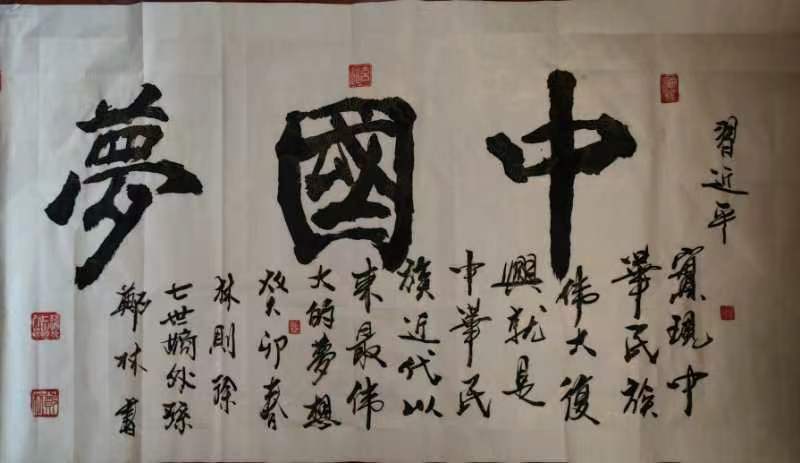 中國夢
習近平
實現中
華民族
伟大復
興就是
中華民
族近代以
來最伟
大的夢想
癸卯春
林則徐
七世嫡外孫
鄭林書